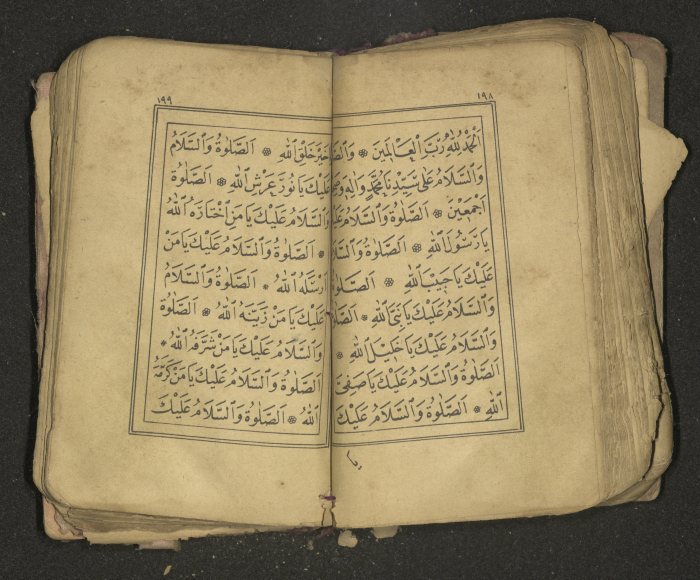 ١٩٨
اَلْحَمْدُ لِلّٰهِ رَبِّ الْعَالَمِينَ ❊ وَالصَّ
وَالسَّلَامُ عَلٰى سَيِّدِنَا مُحَمَّدٍ وَاٰلِهِ وَصَحْ
اَجْمَعِينَ ❊ اَلصَّلٰوةُ وَالسَّلَامُ عَلَيْ
يَا رَسُولَ اللّٰهِ ❊ اَلصَّلٰوةُ وَالسَّلَا
عَلَيْكَ يَا حَبِيبَ اللّٰهِ ❊ اَلصَّلٰوةُ
وَالسَّلَامُ عَلَيْكَ يَا نَبِيَّ اللّٰهِ ❊ اَلصَّلٰو
وَالسَّلَامُ عَلَيْكَ يَا خَلِيلَ اللّٰهِ ❊
اَلصَّلٰوةُ وَالسَّلَامُ عَلَيْكَ يَا صَفِيَّ
اللّٰهِ ❊ اَلصَّلٰوةُ وَالسَّلَامُ عَلَيْكَ
يا
١٩٩
خَيْرَ خَلْقِ اللّٰهِ ❊ اَلصَّلٰوةُ وَالسَّلَامُ
عَلَيْكَ يَا نُورَ عَرْشِ اللّٰهِ ❊ اَلصَّلٰوةُ
وَالسَّلَامُ عَلَيْكَ يَا مَنِ اخْتَارَهُ اللّٰهُ
❊ اَلصَّلٰوةُ وَالسَّلَامُ عَلَيْكَ يَا مَنْ
اَرْسَلَهُ اللّٰهُ ❊ اَلصَّلٰوةُ وَالسَّلَامُ
عَلَيْكَ يَا مَنْ زَيَّنَهُ اللّٰهُ ❊ اَلصَّلٰوةُ
وَالسَّلَامُ عَلَيْكَ يَا مَنْ شَرَّفَهُ اللّٰهُ ❊
اَلصَّلٰوةُ وَالسَّلَامُ عَلَيْكَ يَا مَنْ كَرَّمَهُ
اللّٰهُ ❊ اَلصَّلٰوةُ وَالسَّلَامُ عَلَيْكَ